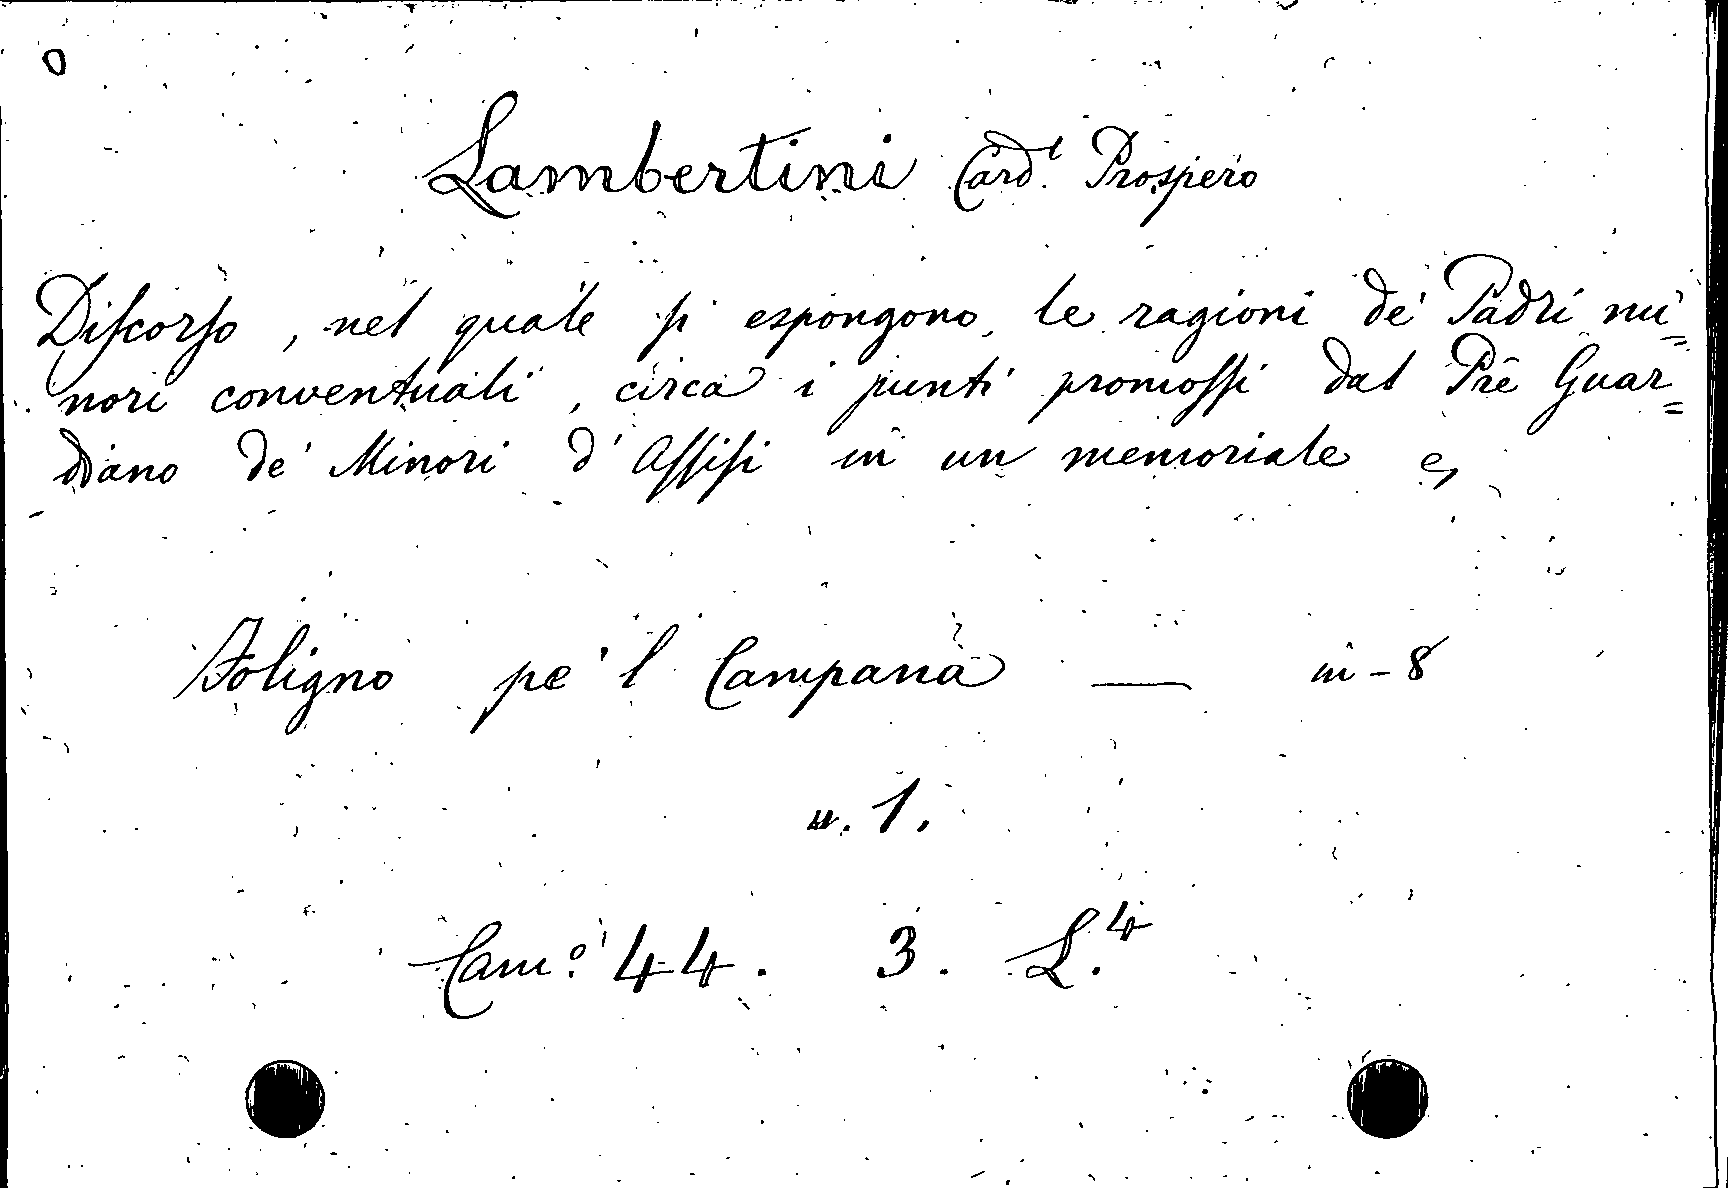 Lambertini Card.l Prospero
Discorso, nel quale si espongono le ragioni de' Padri mi=
nori conventuali, circa i punti promossi dal Prê Guar=
diano de' Minori d'Assisi in un memoriale
Foligno pe'l Campana — in-8
n. 1.
Cam.º 44. 3. L.4